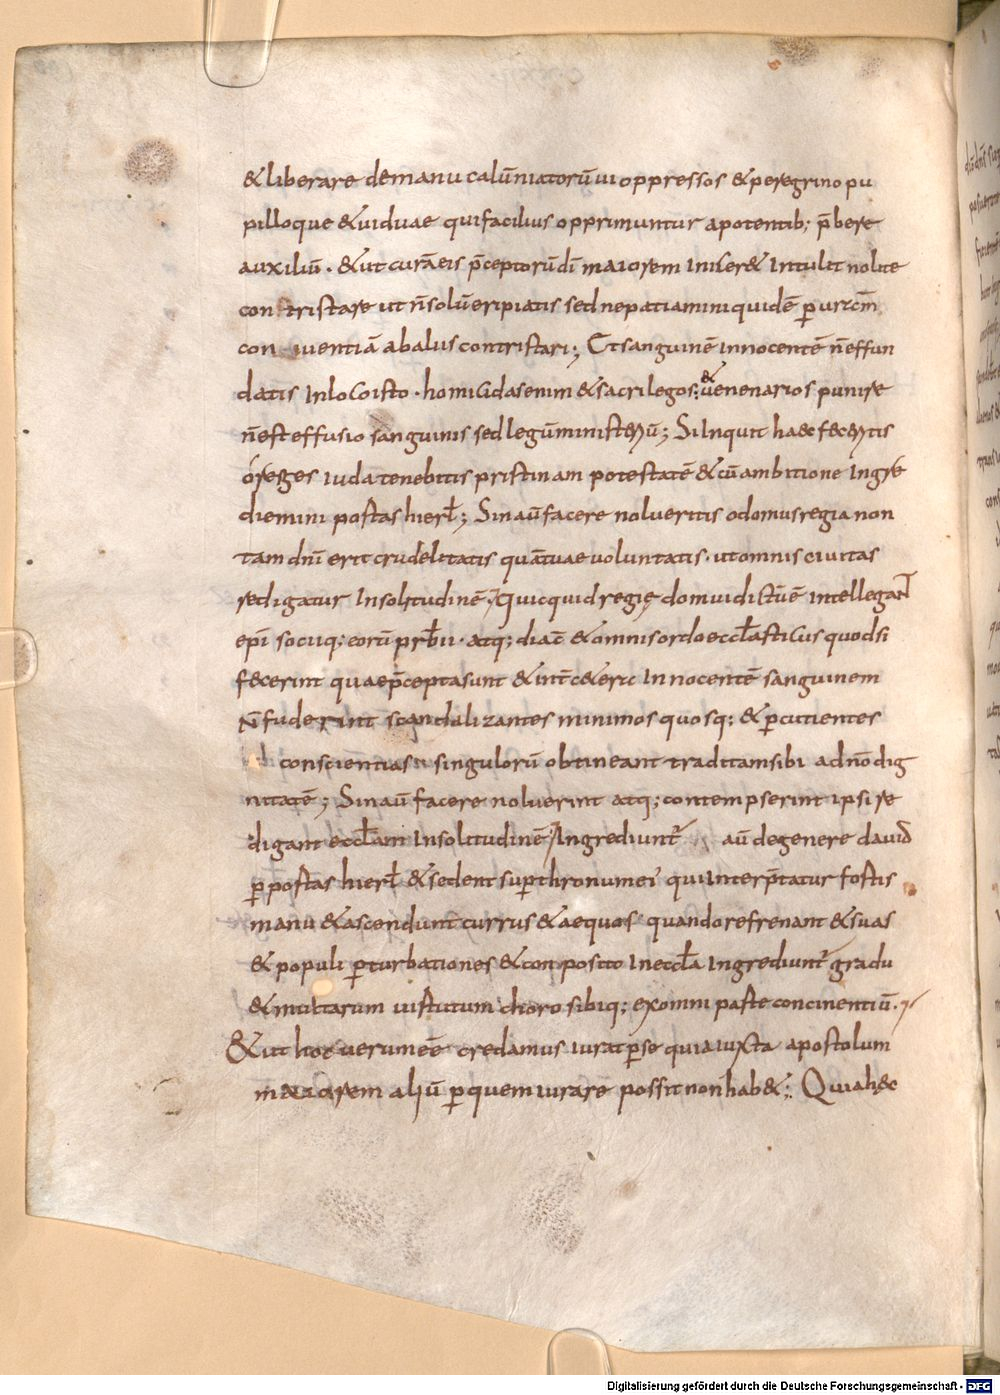 & liberare demanu calūniatorū ui oppressos & peregrino pu
pilloque & uiduae qui facilius opprimuntur apotentib; p̄bere
auxiliū · & ut curā eis p̄ceptorū dī maiorem iniceret intulit nolite
contristare ut n̄ solū eripiatis sed ne patiamini quidē p uram
coniuentiā ab aliis contristari; Et sanguinē innocentē n̄ effun
datis in loco isto · homicidas enim & sacrilegos & uenenarios punire
n̄ est effusio sanguinis sed legū ministeriū; Si inquit haec feceritis
o reges iuda tenebitis pristinam potestatē & cū ambitione ingre
diemini portas hierl; Sin aū facere nolueritis o domus regia non
tam dn̄i erit crudelitatis quā tuae uoluntatis · ut omnis ciuitas
redigatur in solitudinē; quicquid regię domui dictū ē intellegant
ep̄i sociiq; eorū prb̄ii · atq; diac̄ & omnis ordo eccl̄asticus quod si
fecerint quae p̄cepta sunt & int̄ cetera innocentē sanguinem
n̄ fuderint scandalizantes minimos quosq; & p̄cutientes
conscientias singulorū obtineant traditam sibi a dn̄o dig
nitatē; Sin aū facere noluerint atq; contempserint ipsi re
digant eccl̄am in solitudinē; Ingrediunt̄ aū de genere dauid
p portas hierl & sedent sup thronum ei qui interp̄tatur fortis
manu & ascendunt currus & aequos quando refrenant & suas
& populi p̄turbationes & conposito in eccl̄a ingrediunt̄ gradu
& multarum uirtutum choro sibiq; ex omni parte concinentiū ·
& ut hoc uerum eē credamus iurat p se quia iuxta apostolum
maiorem aliū p quem iurare possit non hab&; Quia hęc
Digitalisierung gefördert durch die Deutsche Forschungsgemeinschaft - DFG